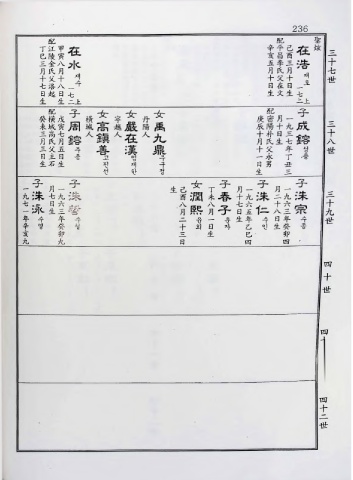 236
聖鉉
三十七世
在浩 재호 一七二上
己酉三月十日生
配平昌李氏父在文
辛亥五月十日生
在水 재수 一七二上
甲寅八月十八日生
配江陵金氏父洛起
丁巳三月十七日生
三十八世
子 成鎔 성용
一九三七年丁丑三
月十日生
配密陽朴氏父永男
庚辰十月十一日生
女 禹九鼎 우구정
丹陽人
女 嚴在漢 엄재한
寧越人
女 高鎭善 고진선
橫城人
子 周鎔 주용
戊寅七月五日生
配橫城高氏父主石
癸未三月三日生
三十九世
子 洙宗 수종
一九六三年癸卯四
月二十八日生
子 洙仁 수인
一九六五年乙巳四
月十七日生
子 春子 춘자
丁未八月一日生
女 潤熙 윤희
己酉八月二十三日
生
子 洙
一九六三年癸卯九
月七日生
子 洙泳 수영
一九七一年辛亥九
四十世
四十
四十二世